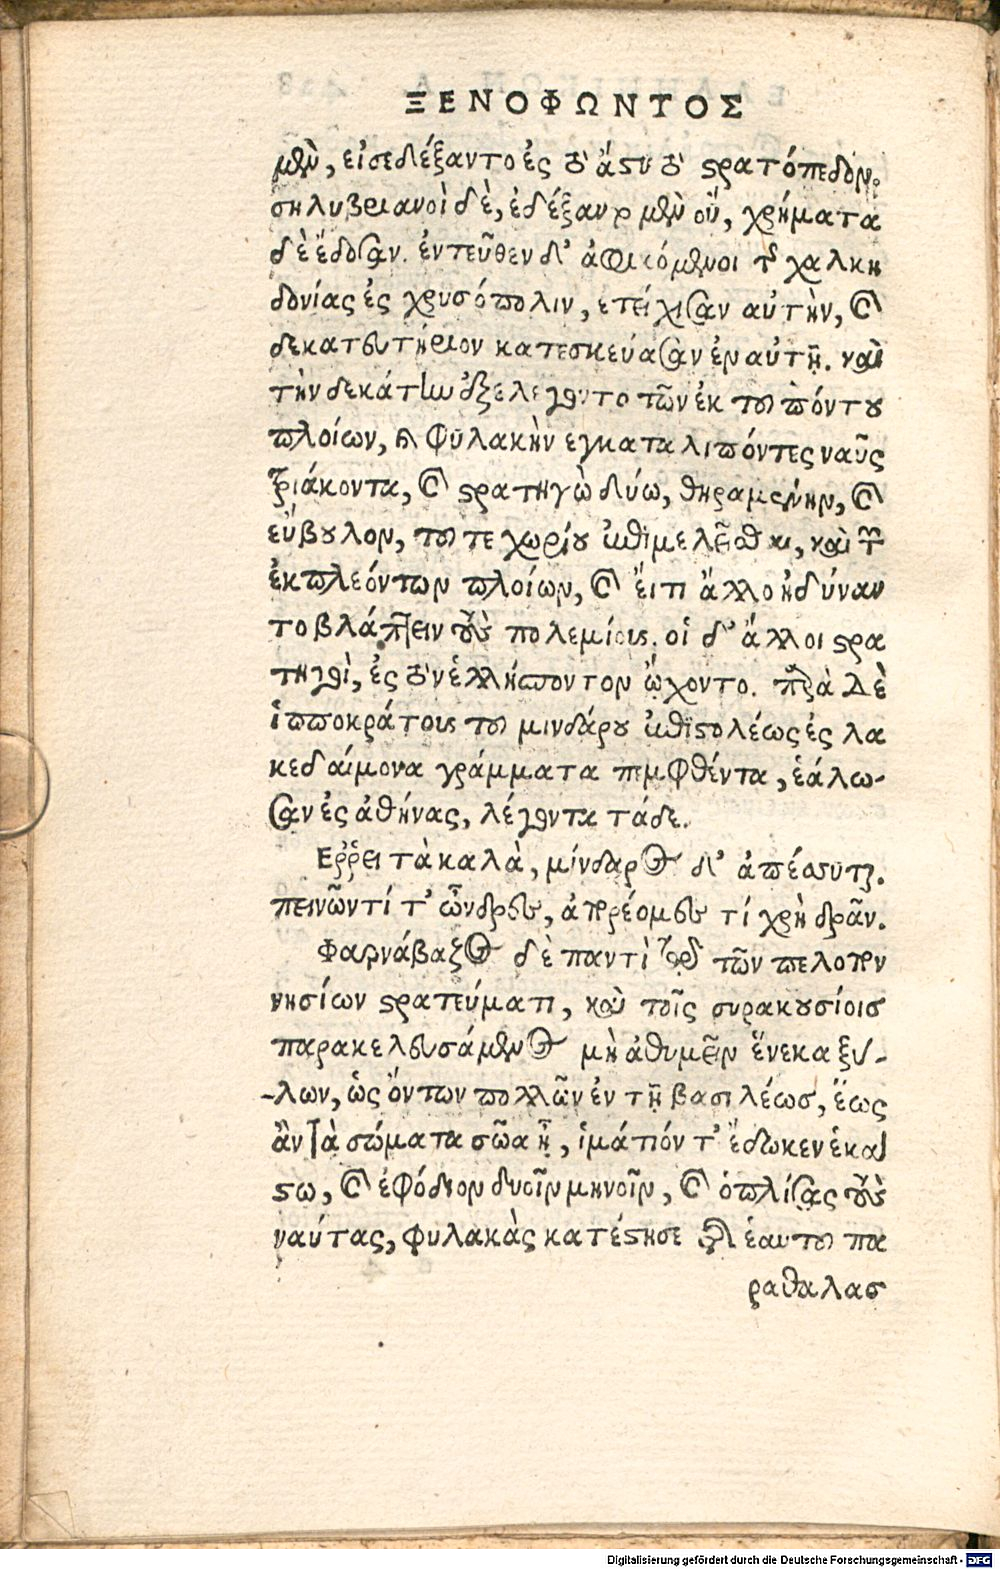 ΞΕΝΟΦΩΝΤΟΣ
μὲν, εἰσεδέξαντο ἐς τὸ ἄστυ τὸ στρατόπεδον.
σηλυβριανοὶ δὲ, ἐδέξαντο μὲν οὔ, χρήματα
δὲ ἔδοσαν. ἐντεῦθεν δ' ἀφικόμενοι τῆς χαλκη
δονίας ἐς χρυσόπολιν, ετείχισαν αὐτὴν, καὶ
δεκατευτήριον κατεσκεύασαν ἐν αὐτῇ. καὶ
τὴν δεκάτην ἐξελέγοντο τῶν ἐκ τοῦ πόντου
πλοίων, καὶ φυλακὴν εγκαταλιπόντες ναῦς
τριάκοντα, καὶ στρατηγὼ δύω, θηραμένην, καὶ
εὔβουλον, τοῦ τε χωρίου ἐπιμελεῖσθαι, καὶ τῶν
ἐκπλεόντων πλοίων, καὶ εἴτι ἄλλο ἠδύναν
το βλάπτειν τοὺς πολεμίους. οἱ δ' ἄλλοι στρα
τηγοὶ, ἐς τὸν ἑλλήσποντον ᾤχοντο. παρὰ δὲ
ἱπποκράτους τοῦ μινδάρου ἐπιστολέως ἐς λα
κεδαίμονα γράμματα πεμφθέντα, ἑάλω-
σαν ἐς ἀθήνας, λέγοντα τάδε.
Ερῥει τὰ καλὰ, μίνδαρος δ' ἀπέσσυται.
πεινῶντί τ' ὦνδρες, ἀπορέομες τί χρὴ δρᾶν.
Φαρνάβαζος δὲ παντὶ τῷ τῶν πελοπον
νησίων στρατεύματι, καὶ τοῖς συρακουσίοισ
παρακελευσάμενος μὴ ἀθυμεῖν ἕνεκα ξύ-
-λων, ὡς ὄντων πολλῶν ἐν τῇ βασιλέωσ, ἕως
ἂν τὰ σώματα σῶα ᾖ, ἱμάτιόν τ' ἔδωκεν ἑκά
στω, καὶ ἐφόδιον δυοῖν μηνοῖν, καὶ ὁπλίσας τοὺς
ναύτας, φυλακὰς κατέστησε τῆς ἑαυτοῦ πα
ραθαλασ
Digitalisierung gefördert durch die Deutsche Forschungsgemeinschaft - DFG